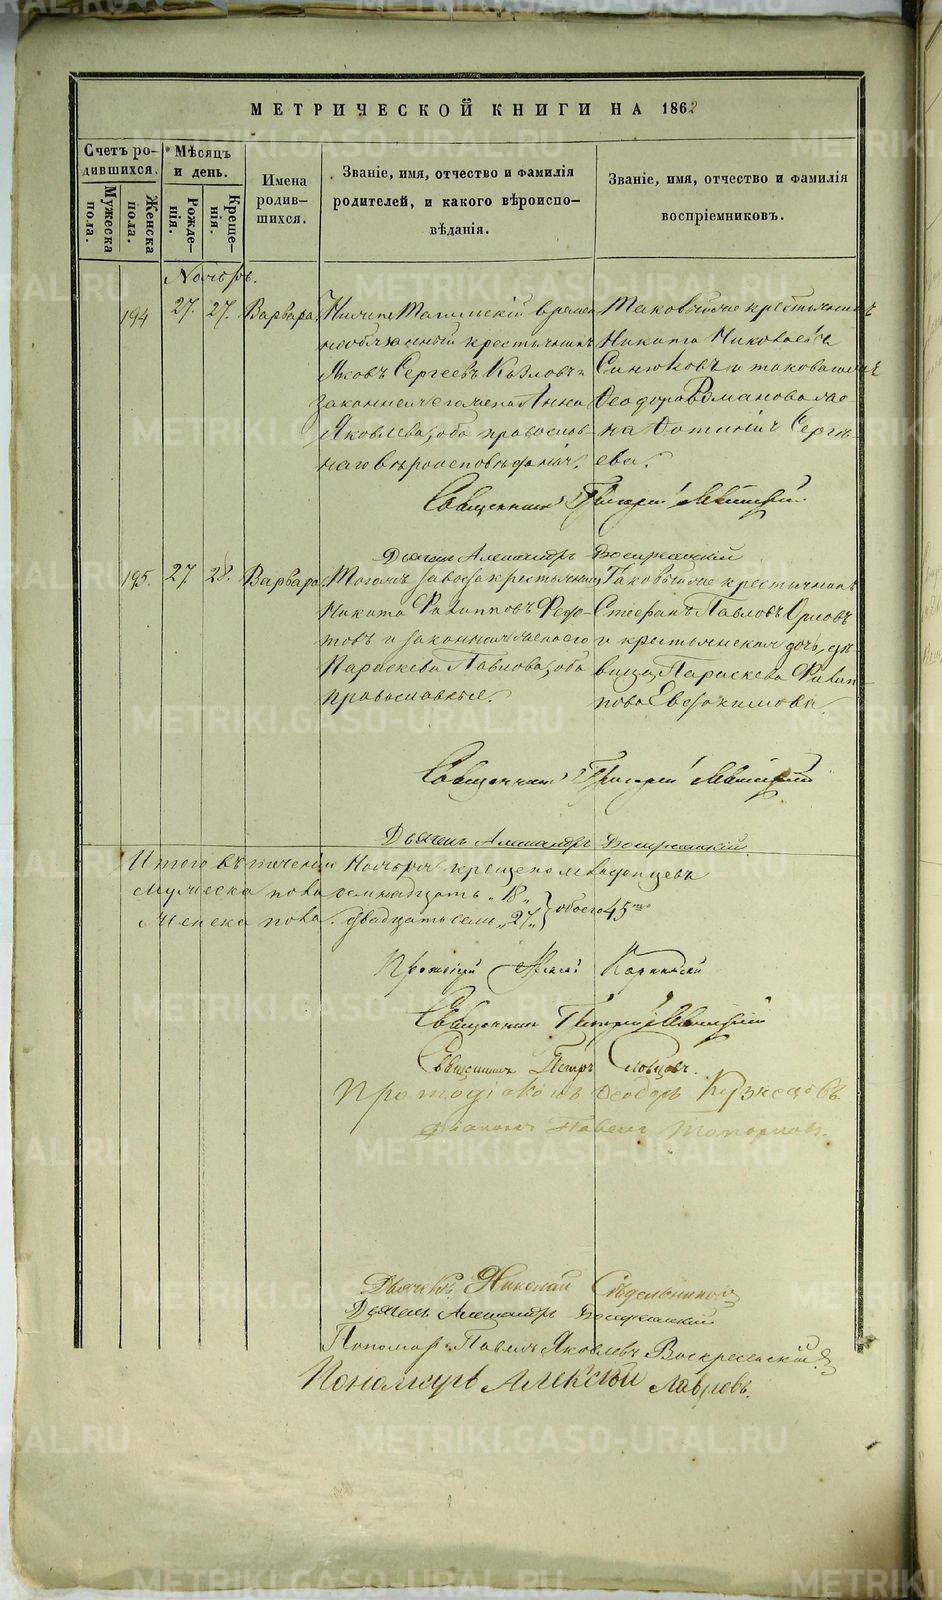 МЕТРИЧЕСКОЙ КНИГИ НА 1862
Счетъ ро-
дившихся.
Мужеска
пола.
Женска
пола.
Мѣсяцъ
и день.
Рожде-
нія.
Креще-
нія.
Имена
родив-
шихся.
Званіе, имя, отчество и фамилія
родителей, и какого вѣроиспо-
вѣданія.
Званіе, имя, отчество и фамилія
воспріемниковъ.
Ноябрь.
194 27. 27. Варвара
Нижне Тагильскій времен
нообязанный крестьянинъ
Яковъ Сергеевъ Козловъ и
законная его жена Анна
Яковлева, оба православ-
наго вѣроисповѣданія.
Таковый же крестьянинъ
Никита Николаевъ
Синюковъ и таковая же
Феодора Романова же
на Фотинія Сергѣ-
ева.
Священникъ Григорій Левитскій
Дьячекъ Александръ Воскресенскій
195. 27 28. Варвара
Тогожъ завода крестьянинъ
Никита Филипповъ Федо-
товъ и законная жена его
Параскева Павлова, оба
православные.
Таковый же крестьянинъ
Стефанъ Павловъ Орловъ
и крестьянская дочь, дѣ-
вица Параскева Филип-
пова Евдокимова.
Священникъ Григорій Левитскій
Дьячекъ Александръ Воскресенскій
Итого въ теченіи Ноября крещено младенцевъ
Мужеска пола осмнадцать „18„
Женска пола. двадцать семь „27„ } обоего 45
Протоіерей
Священникъ Григорій Левитскій
Священникъ Петръ Словцовъ.
Протодіаконъ Феодоръ Кузнецовъ
Діаконъ Павелъ Топорковъ.
Дьячекъ Николай Сѣдельниковъ
Дьячекъ Александръ Воскресенскій
Пономарь Павелъ Яковлевъ Воскресенскій
Пономарь Алексѣй Лавровъ.
METRIKI.GASO-URAL.RU